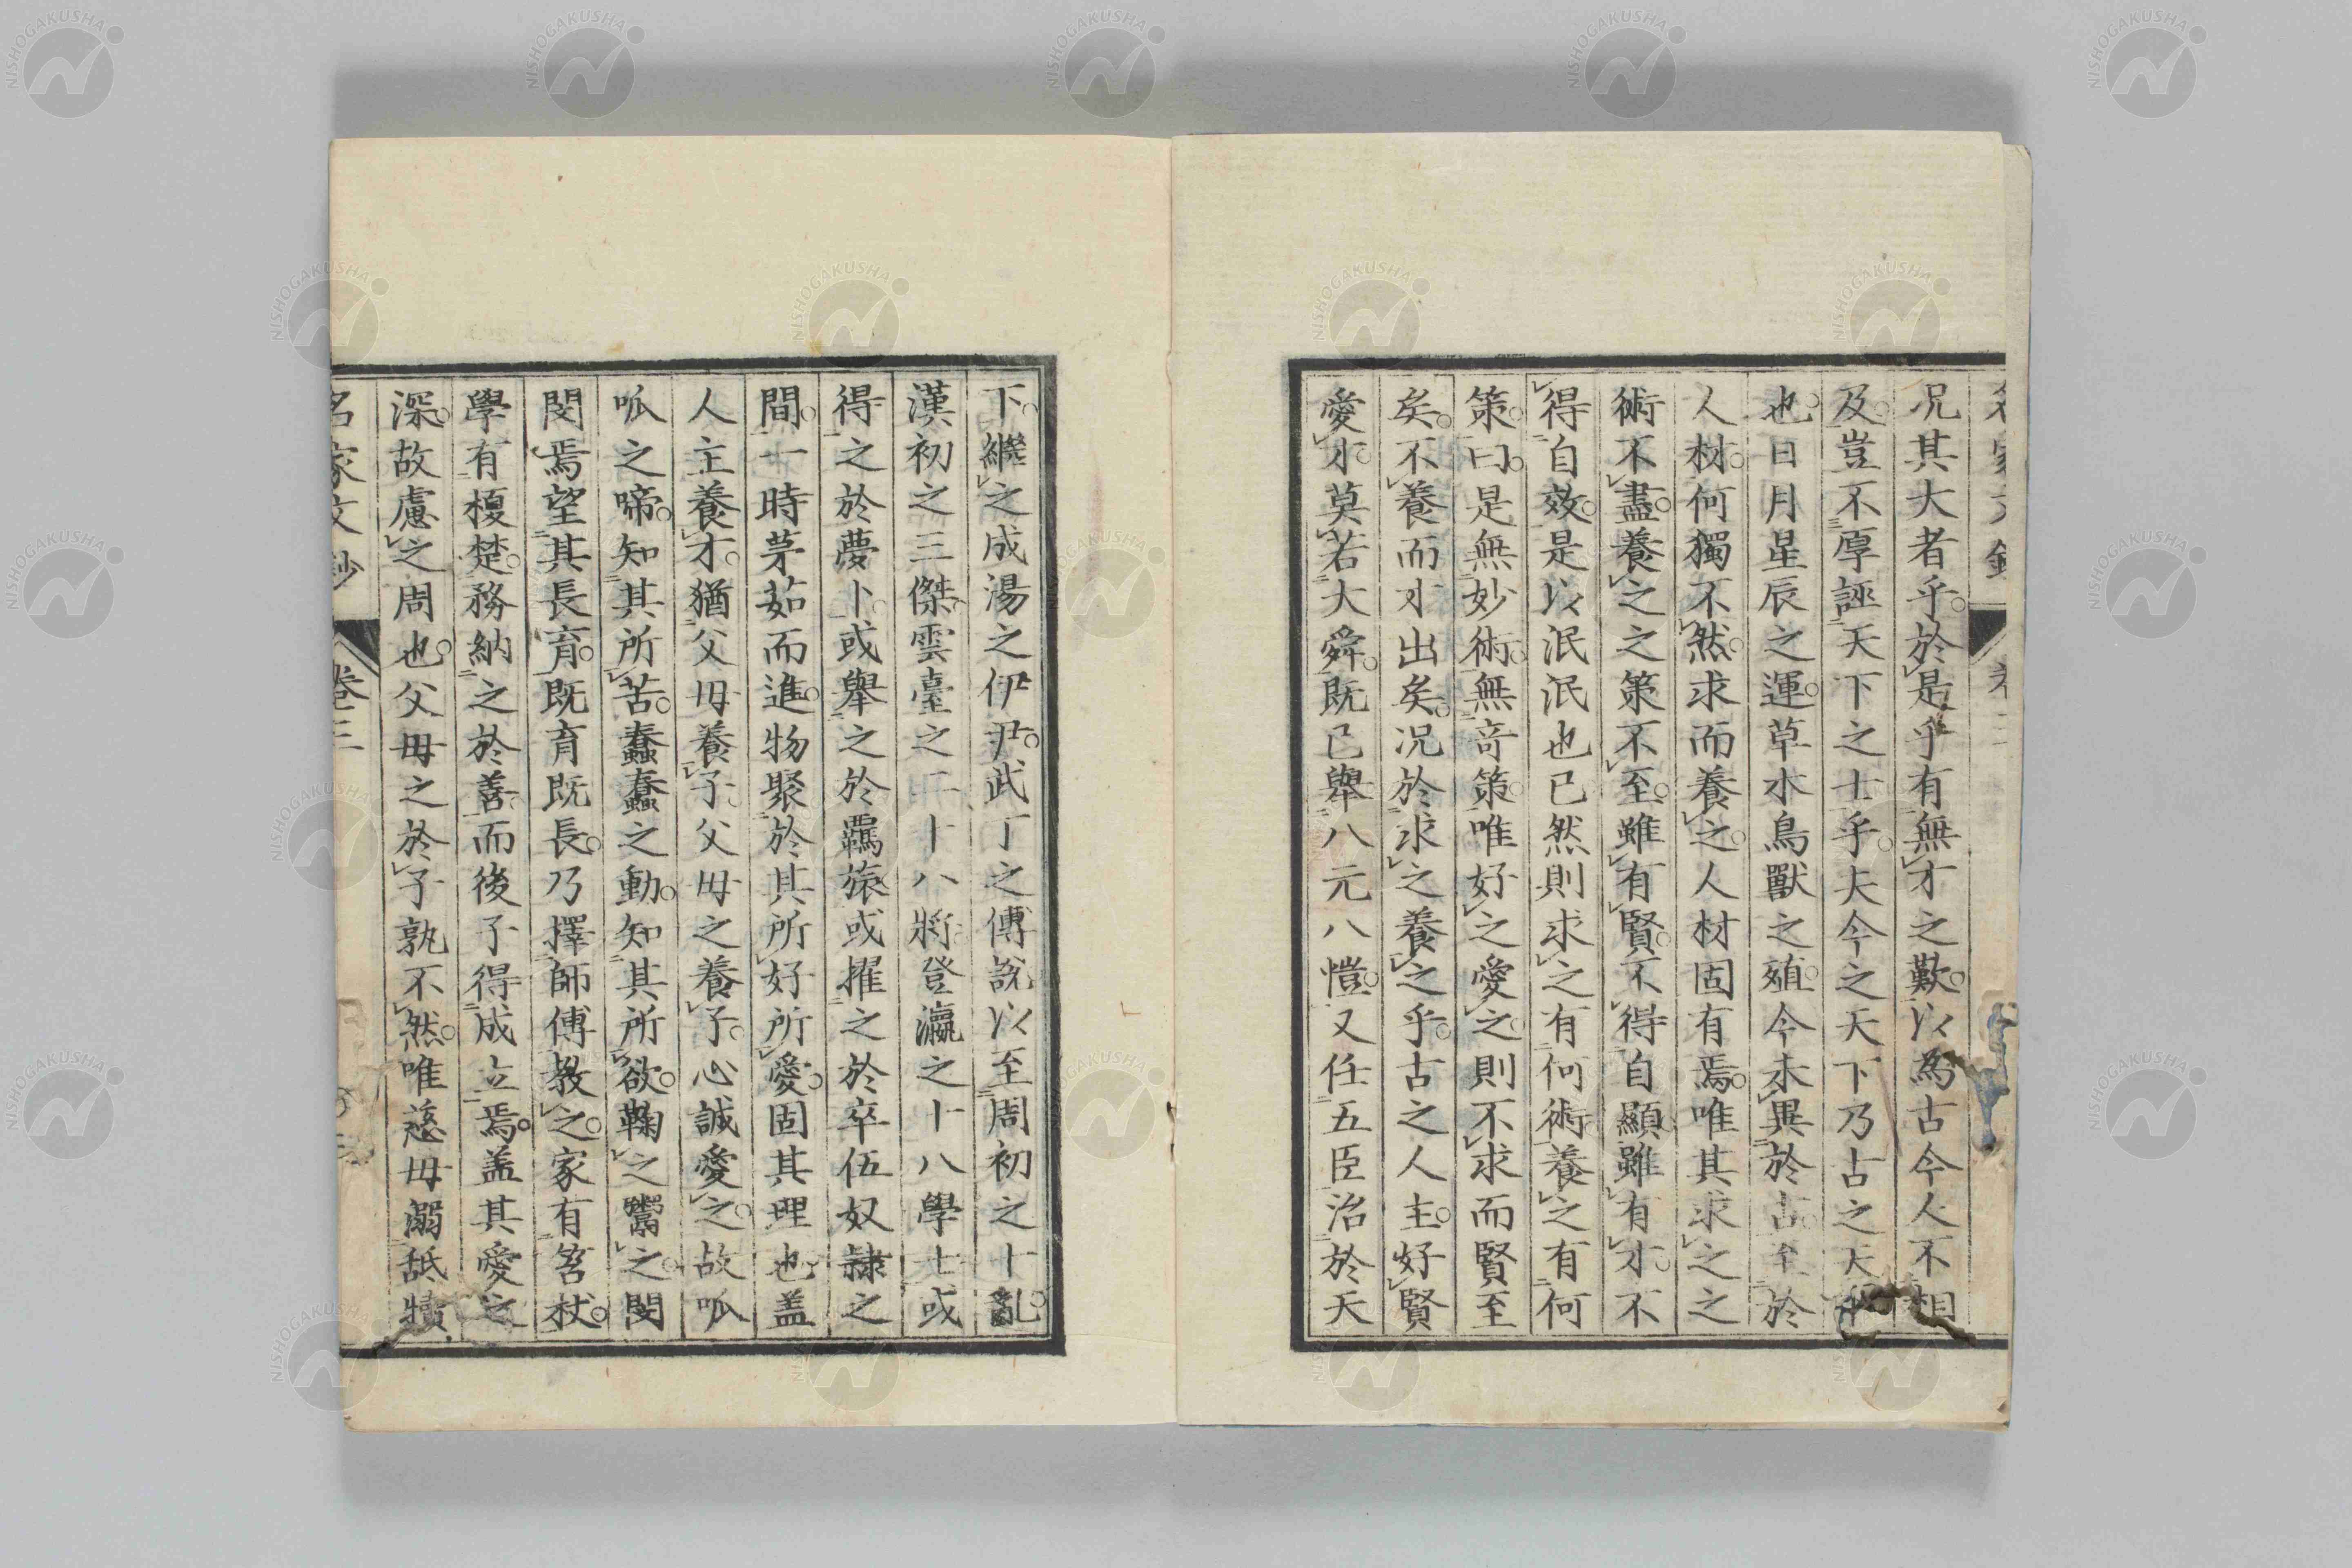 况其大者乎。於是乎有無才之歎。以為古今人不相
及。豈不厚誣天下之士乎。夫今之天下乃古之天下
也。日月星辰之運。草木鳥獸之殖。今未異於古。至於
人材。何獨不然。求而養之。人材固有焉。唯其求之之
術不盡。養之之策不至。雖有賢。不得自顯。雖有才。不
得自效。是以泯泯也已然則求之有何術。養之有何
策。曰。是無妙術。無奇策。唯好之愛之。則不求而賢至
矣。不養而才出矣。况於求之養之乎。古之人主。好賢
愛才。莫若大舜。既已舉八元八愷。又任五臣治於天
下。繼之成湯之伊尹。武丁之傅說以至周初之十亂。
漢初之三傑。雲臺之二十八將。登瀛之十八學士或
得之於夢卜。或舉之於羈旅。或擢之於卒伍奴隷之
間。一時茅茹而進。物聚於其所好所愛。固其理也。盖
人主養才。猶父母養子。父母之養子。心誠愛之。故呱
呱之啼。知其所苦。蠢蠢之動。知其所欲。鞠之鬻之。閔
閔焉望其長育。既育既長。乃擇師傅教之。家有笞杖。
學有榎楚。務納之於善。而後子得成立焉。盖其愛之
深。故慮之周也。父母之於子孰不然。唯慈母溺舐犢
名家文鈔 卷三